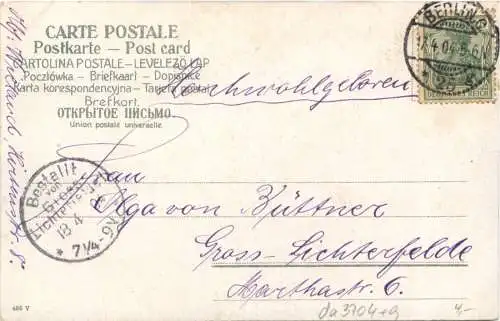 CARTE POSTALE
Postkarte — Post card
CARTOLINA POSTALE - LEVELEZŐ LAP
Poczlówka — Briefkaart — Dopisnice
Karta korespondencyjna — Tarjeta postal
Brefkort.
ОТКРЫТОЕ ПИСЬМО.
Union postale universelle.
BERLIN
4.04.5-6N
REICH
Hochwohlgeboren
Frau
Olga von Büttner
Gross-Lichterfelde
Marthastr. 6.
Bestellt
vom
Gross-
Lichterfelde
18 4
* 7 1/4 -
da3704+a
4,-
486 V